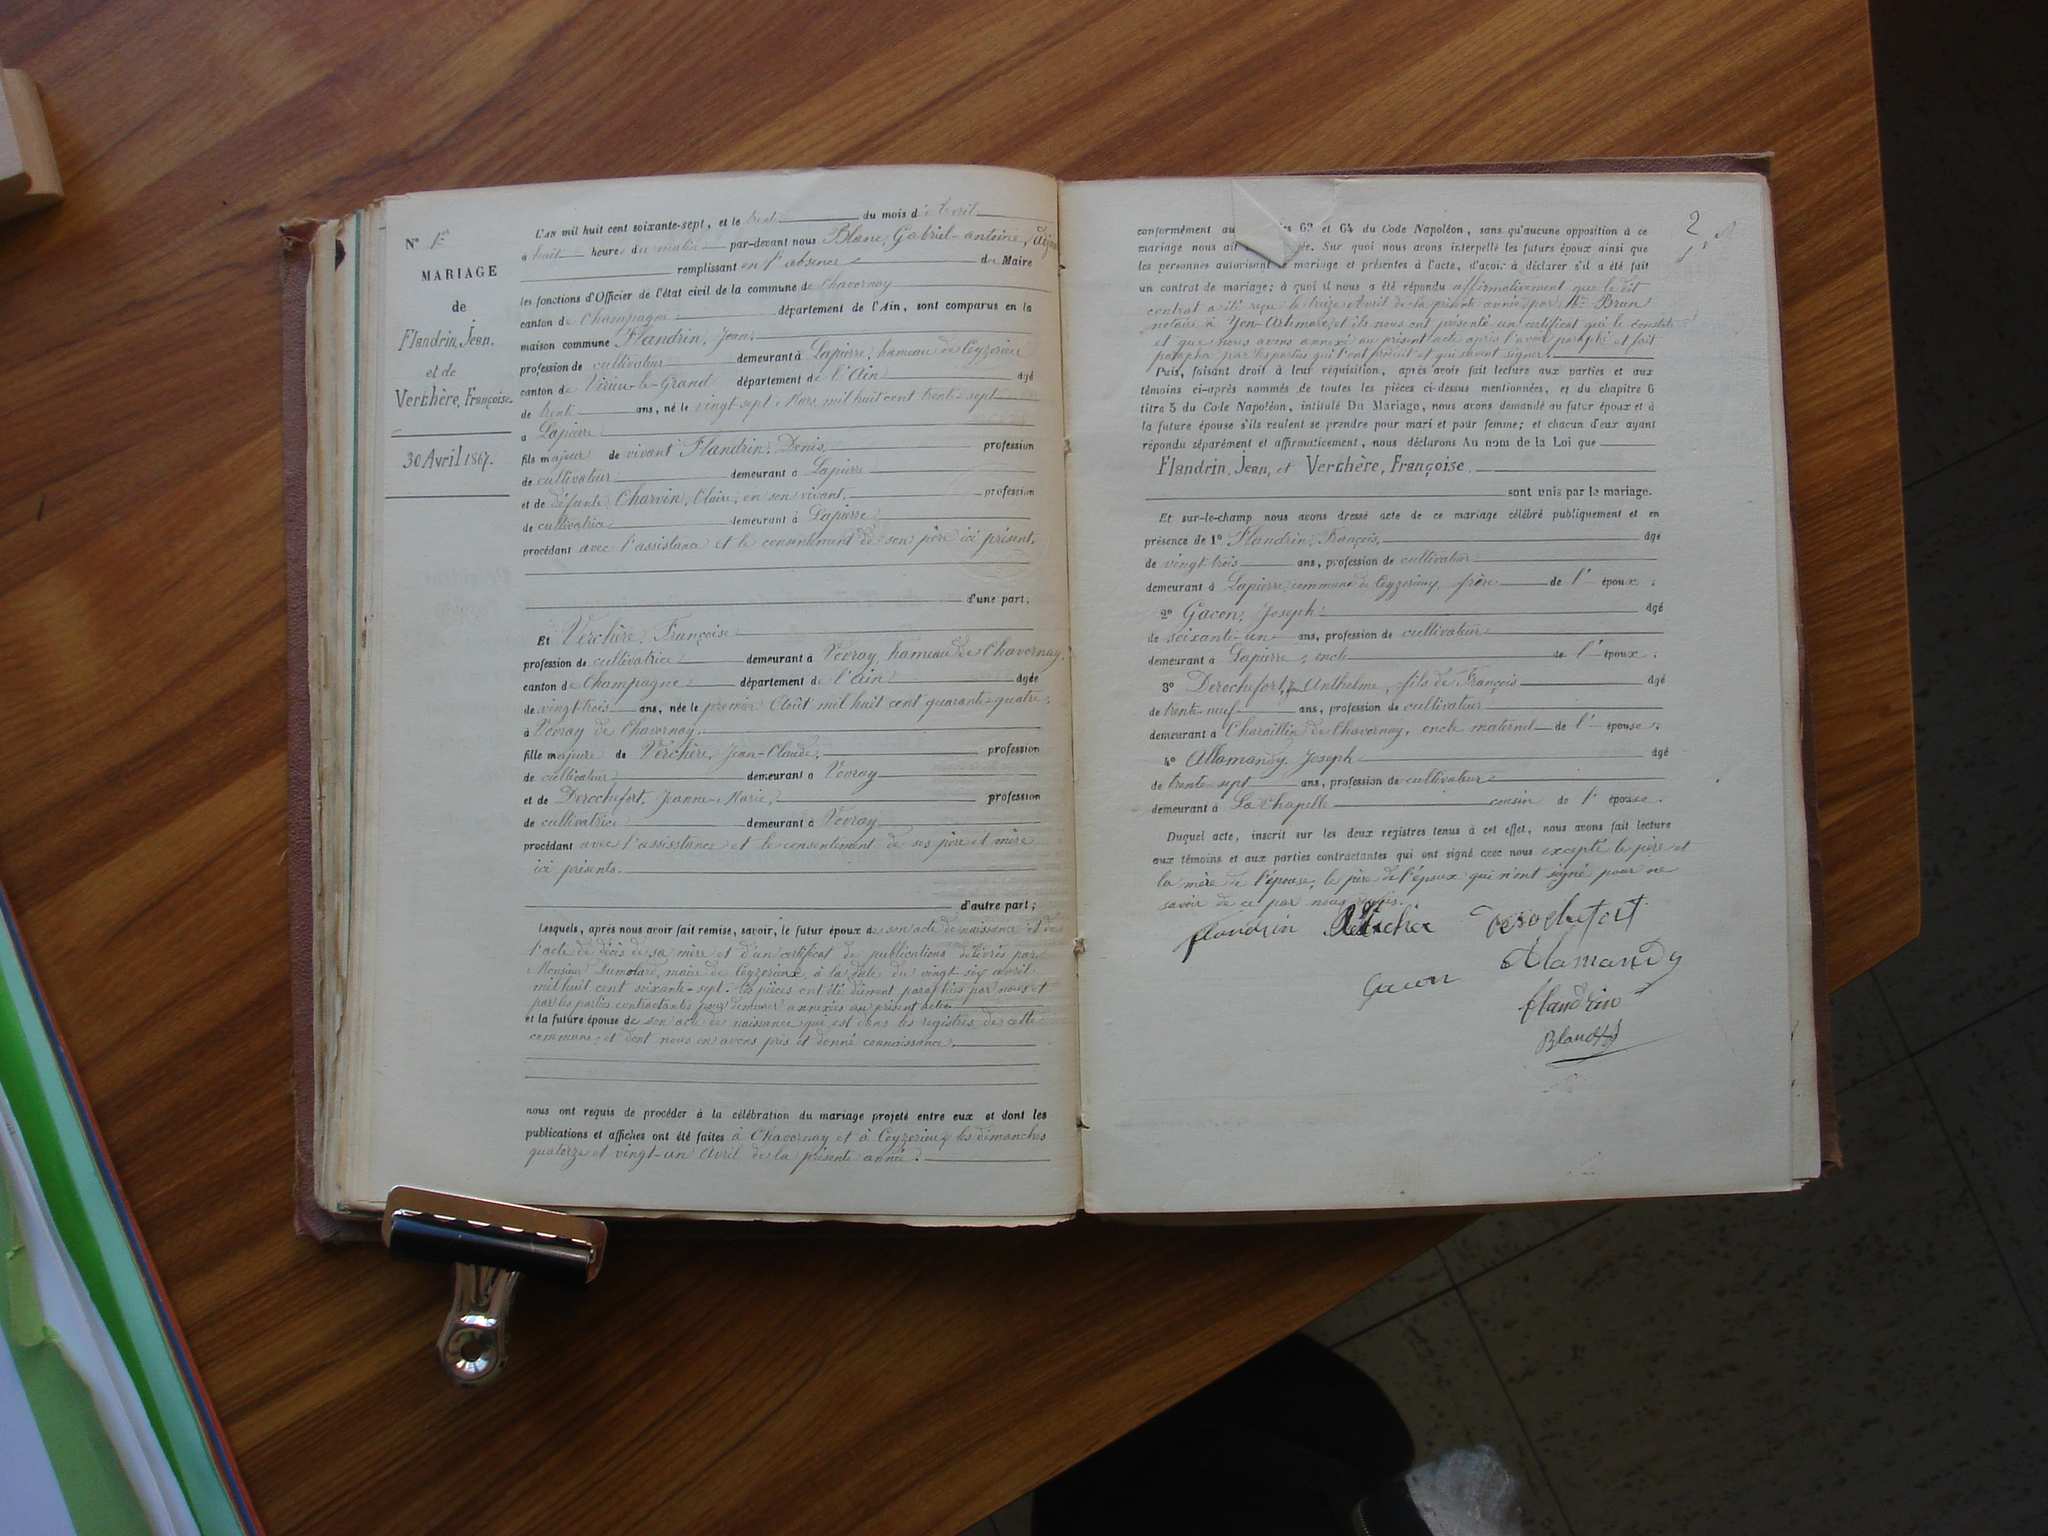 N° 1er
MARIAGE
de
Flandrin, Jean.
et de
Verchère, Françoise.
30 Avril 1867.
L'an mil huit cent soixante-sept, et le trente du mois d'Avril
à huit heures du matin par-devant nous Blanc, Gabriel-antoine, adjoint
remplissant en l'absence du Maire
les fonctions d'Officier de l'état civil de la commune de Chavornay
canton de Champagne département de l'Ain, sont comparus en la
maison commune Flandrin, Jean,
profession de cultivateur demeurant à Lapierre, hameau de Ceyzerieu
canton de Virieu-le-Grand département de l'Ain âgé
de trente ans, né le vingt-sept Mars mil huit cent trente-sept
à Lapierre
fils majeur de vivant Flandrin, Denis, profession
de cultivateur demeurant à Lapierre
et de défunte Charvin, Claire, en son vivant, profession
de cultivatrice demeurant à Lapierre
procédant avec l'assistance et le consentement de son père ici présent.
d'une part;
Et Verchère, Françoise
profession de cultivatrice demeurant à Vovray, hameau de Chavornay,
canton de Champagne département de l'Ain âgée
de vingt-trois ans, née le premier Août mil huit cent quarante-quatre
à Vovray de Chavornay.
fille majeure de Verchère, Jean-Claude, profession
de cultivateur demeurant à Vovray
et de Derochefort, Jeanne-Marie, profession
de cultivatrice demeurant à Vovray
procédant avec l'assisstance et le consentement de ses père et mère
ici présents.
d'autre part;
Lesquels, après nous avoir fait remise, savoir, le futur époux de son acte de naissance et de
l'acte de décès de sa mère et d'un certificat de publications délivrés par
Monsieur Dumolard, maire de Ceyzerieux, à la date du vingt six avril
mil huit cent soixante-sept. les pièces ont été dûment paraphées par nous et
par les parties contractantes pour demeurer annexées au présent acte.
et la future épouse de son acte de naissance qui est dans les registres de cette
commune, et dont nous en avons pris et donné connaissance.
nous ont requis de procéder à la célébration du mariage projeté entre eux et dont les
publications et affiches ont été faites à Chavornay et à Ceyzerieux les dimanches
quatorze et vingt-un Avril de la présente année.
2
conformément au 63 et 64 du Code Napoléon, sans qu'aucune opposition à ce
mariage nous ait Sur quoi nous avons interpellé les futurs époux ainsi que
les personnes autorisant le mariage et présentes à l'acte, d'avoir à déclarer s'il a été fait
un contrat de mariage; à quoi il nous a été répondu affirmativement que le dit
contrat a été reçu le treize Avril de la présente année par Me Brun
notaire à et ils nous ont présenté un certificat qui le constate
et que nous avons annexé au présent acte après l'avoir paraphé et fait
parapher par les parties qui l'ont produit et qui savent signer.
Puis, faisant droit à leur réquisition, après avoir fait lecture aux parties et aux
témoins ci-après nommés de toutes les pièces ci-dessus mentionnées, et du chapitre 6
titre 5 du Code Napoléon, intitulé Du Mariage, nous avons demandé au futur époux et à
la future épouse s'ils veulent se prendre pour mari et pour femme; et chacun d'eux ayant
répondu séparément et affirmativement, nous déclarons Au nom de la Loi que
Flandrin, Jean, et Verchère, Françoise.
sont unis par le mariage.
Et sur-le-champ nous avons dressé acte de ce mariage célébré publiquement et en
présence de 1° Flandrin, François, âgé
de vingt-trois ans, profession de cultivateur
demeurant à Lapierre, commune de Ceyzerieux, frère de l'époux;
2° Gacon, Joseph âgé
de soixante-un ans, profession de cultivateur
demeurant à Lapierre, oncle de l'époux;
3° Derochefort, Anthelme, fils de François âgé
de trente-neuf ans, profession de cultivateur
demeurant à Charaillin de Chavornay, oncle maternel de l'épouse;
4° Allamandy, Joseph âgé
de trente-sept ans, profession de cultivateur
demeurant à La Chapelle cousin de l'épouse.
Duquel acte, inscrit sur les deux registres tenus à cet effet, nous avons fait lecture
aux témoins et aux parties contractantes qui ont signé avec nous excepté le père et
la mère de l'épouse, le père de l'époux qui n'ont signé pour ne
savoir de ce par nous requis.
flandrin Derochefort
Alamandy
Gacon
flandrin
Blanc